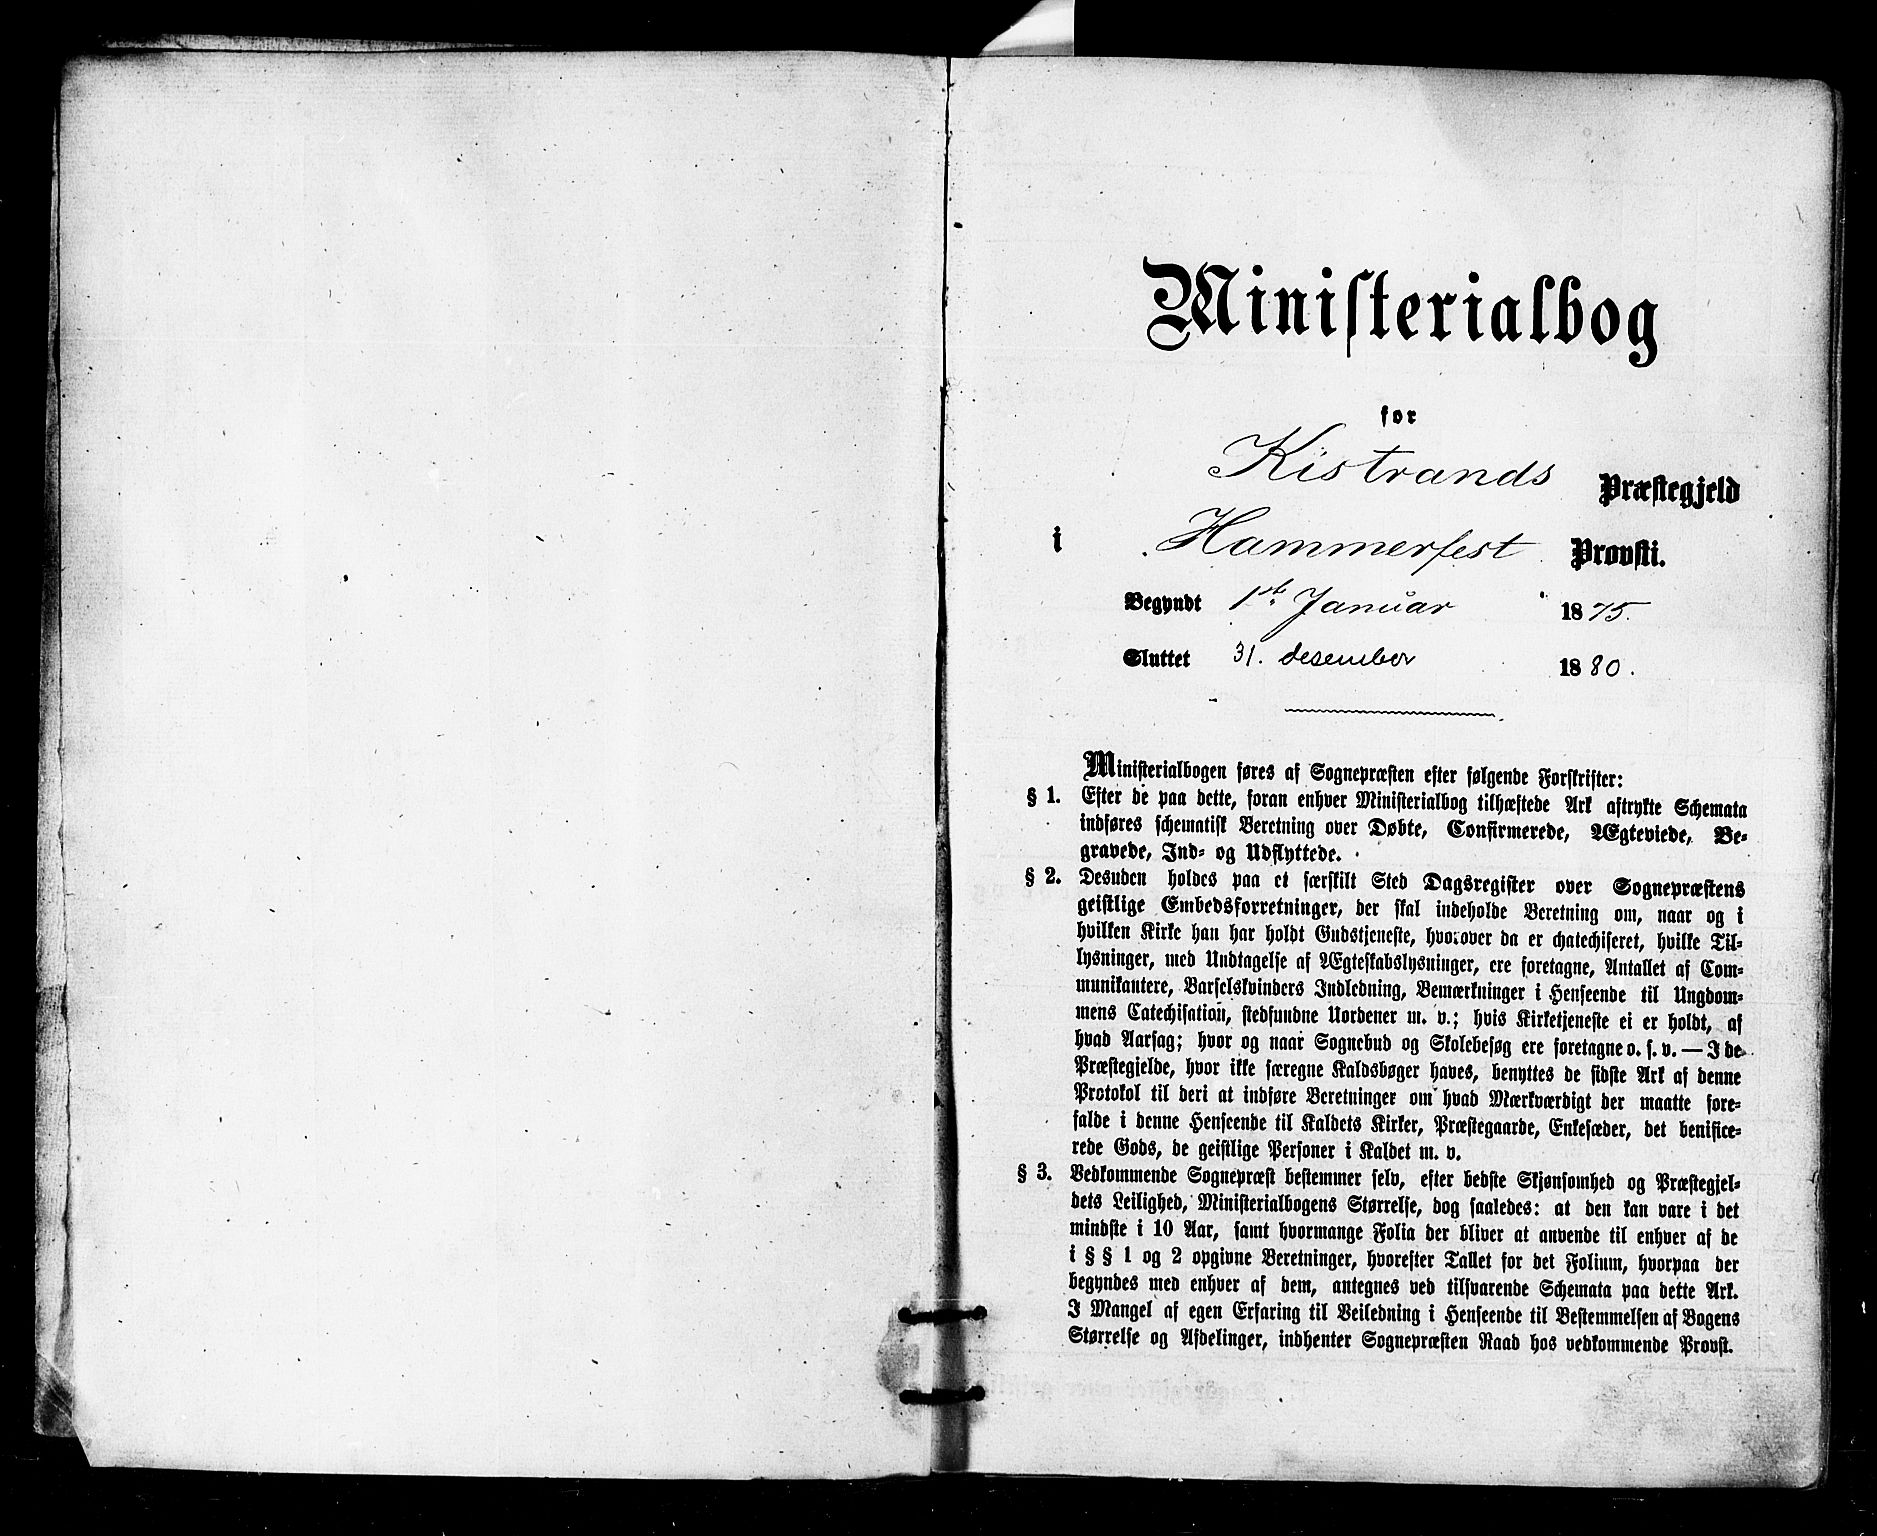 Ministerialbog
for
Kistrands Præstegjeld
i Hammerfest Provsti.
Begyndt 1ste Januar 1875.
Sluttet 31. desember 1880.
Ministerialbogen føres af Sognepræsten efter følgende Forskrifter:
§ 1. Efter de paa dette, foran enhver Ministerialbog tilhæftede Ark aftrykte Schemata
indføres schematisk Beretning over Døbte, Confirmerede, Ægteviede, Be-
gravede, Ind- og Udflyttede.
§ 2. Desuden holdes paa et særskilt Sted Dagsregister over Sognepræstens
geistlige Embedsforretninger, der skal indeholde Beretning om, naar og i
hvilken Kirke han har holdt Gudstjeneste, hvorover da er chatechiseret, hvilke Til-
lysninger, med Undtagelse af Ægteskabslysninger, ere foretagne, Antallet af Com-
munikantere, Barselskvinders Indledning, Bemærkninger i Henseende til Ungdom-
mens Catechisation, stedfundne Uordener m. v.; hvis Kirketjeneste ei er holdt, af
hvad Aarsag; hvor og naar Sognebud og Skolebesøg ere foretagne o. s. v. — I de
Præstegjelde, hvor ikke særegne Kaldsbøger haves, benyttes de sidste Ark af denne
Protokol til deri at indføre Beretninger om hvad Mærkværdigt der maatte fore-
falde i denne Henseende til Kaldets Kirker, Præstegaarde, Enkesæder, det benifice-
rede Gods, de geistlige Personer i Kaldet m. v.
§ 3. Vedkommende Sognepræst bestemmer selv, efter bedste Skjønsomhed og Præstegjel-
dets Leilighed, Ministerialbogens Størrelse, dog saaledes: at den kan vare i det
mindste i 10 Aar, samt hvormange Folia der bliver at anvende til enhver af de
i § § 1 og 2 opgivne Beretninger, hvorefter Tallet for det Folium, hvorpaa der
begyndes med enhver af dem, antegnes ved tilsvarende Schemata paa dette Ark.
I Mangel af egen Erfaring til Veiledning i Henseende til Bestemmelsen af Bogens
Størrelse og Afdelinger, indhenter Sognepræsten Raad hos vedkommende Provst.